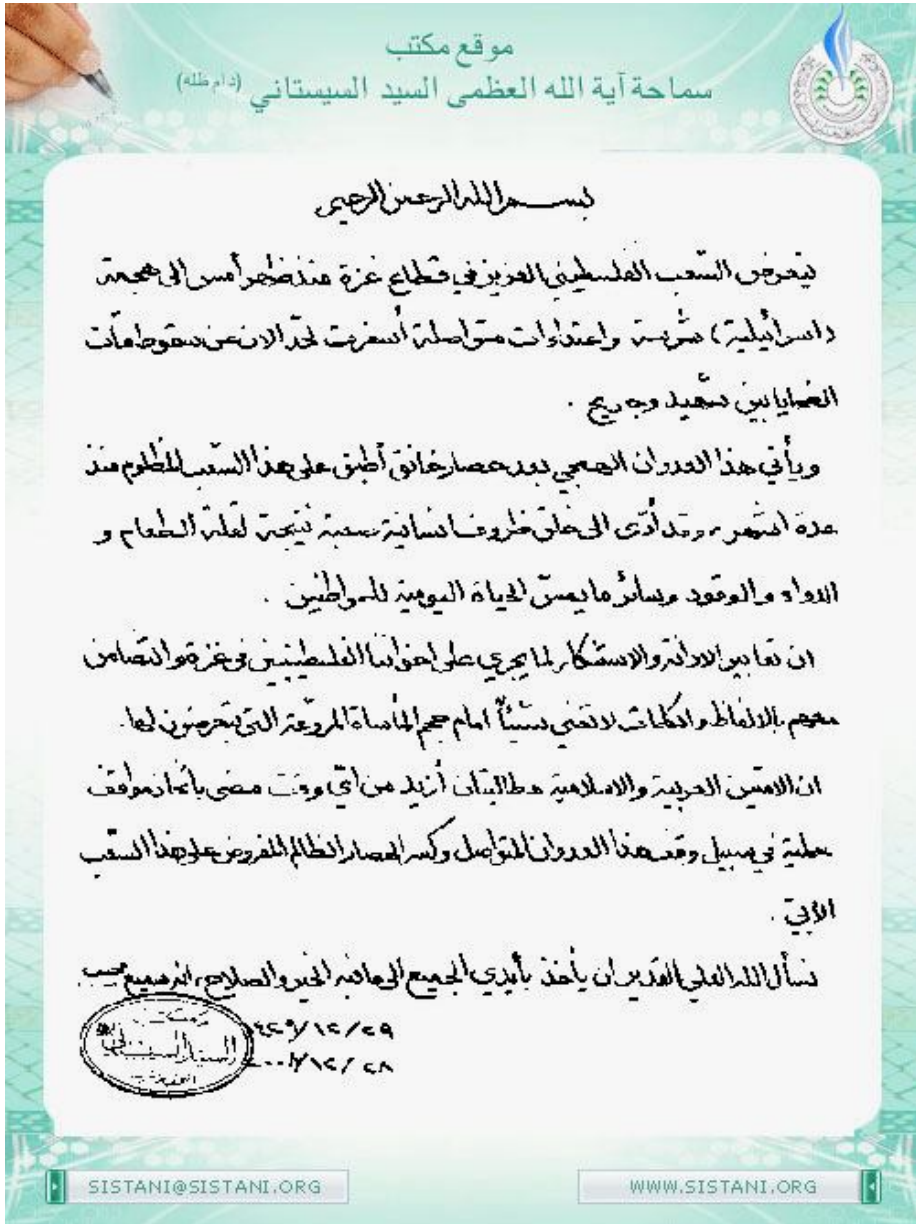 موقع مكتب
سماحة آية الله العظمى السيد السيستاني (دام ظله)
بسم الله الرحمن الرحيم
يتعرض الشعب الفلسطيني العزيز في قطاع غزة منذ ظهر أمس الى هجمة
(اسرائيلية) شرسة واعتداءات متواصلة أسفرت لحد الان عن سقوط مآت
الضحايا بين شهيد وجريح .
ويأتي هذا العدوان الهمجي بعد حصار خانق أطبق على هذا الشعب المظلوم منذ
عدة اشهر، وقد أدّى الى خلق ظروف انسانية صعبة نتيجة لقلة الطعام و
الدواء والوقود وسائر ما يمسّ الحياة اليومية للمواطنين .
ان تعابير الادانة والاستنكار لما يجري على اخواننا الفلسطينيين في غزة والتضامن
معهم بالالفاظ والكلمات لا تغني شيئاً امام حجم المأساة المروّعة التي يتعرضون لها.
ان الامتين العربية والاسلامية مطالبتان أزيد من أيّ وقت مضى باتخاذ مواقف
عملية في سبيل وقف هذا العدوان المتواصل وكسر الحصار الظالم المفروض على هذا الشعب
الأبيّ .
نسأل الله العلي القدير ان يأخذ بأيدي الجميع الى ما فيه الخير والصلاح، انه سميع مجيب
١٤٢٩/١٢/٢٩
٢٠٠٨/١٢/٢٨
مكتب
السيد السيستاني
SISTANI@SISTANI.ORG
WWW.SISTANI.ORG